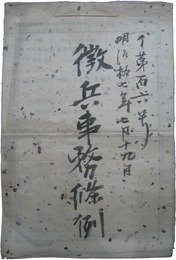 十第百六号
明治拾七年七月十九日
徴兵事務條例